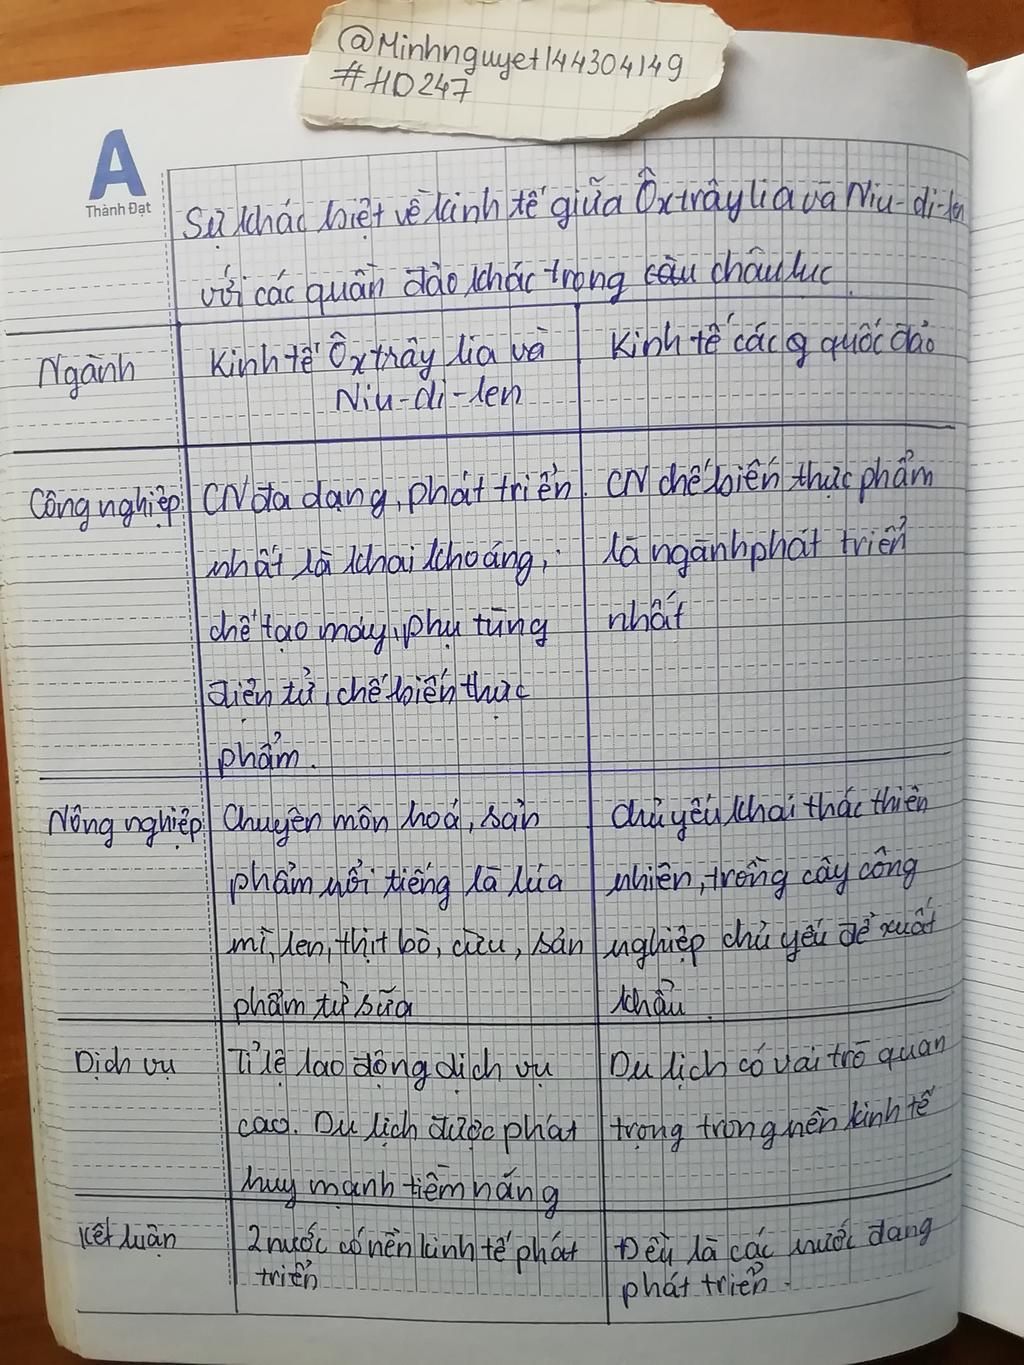 @Minhnguyet144304149
#HD247
A
Thành Đạt
Sự khác biệt về kinh tế giữa Ôxtrâylia và Niu-di-len
với các quần đảo khác trong câu châu lục.
Ngành
Kinh tế Ôxtrây lia và
Niu-di-len
Kinh tế các g quốc đảo
Công nghiệp
CN đa dạng, phát triển
nhất là khai khoáng,
chế tạo máy, phụ tùng
điện tử, chế biến thực
phẩm.
CN chế biến thực phẩm
là ngành phát triển
nhất
Nông nghiệp
Chuyên môn hoá, sản
phẩm nổi tiếng là lúa
mì, len, thịt bò, cừu, sản
phẩm từ sữa
Chủ yếu khai thác thiên
nhiên, trồng cây công
nghiệp chủ yếu để xuất
khẩu.
Dịch vụ
Tỉ lệ lao động dịch vụ
cao. Du lịch được phát
huy mạnh tiềm năng
Du lịch có vai trò quan
trọng trong nền kinh tế
Kết luận
2 nước có nền kinh tế phát
triển
Đều là các nước đang
phát triển.